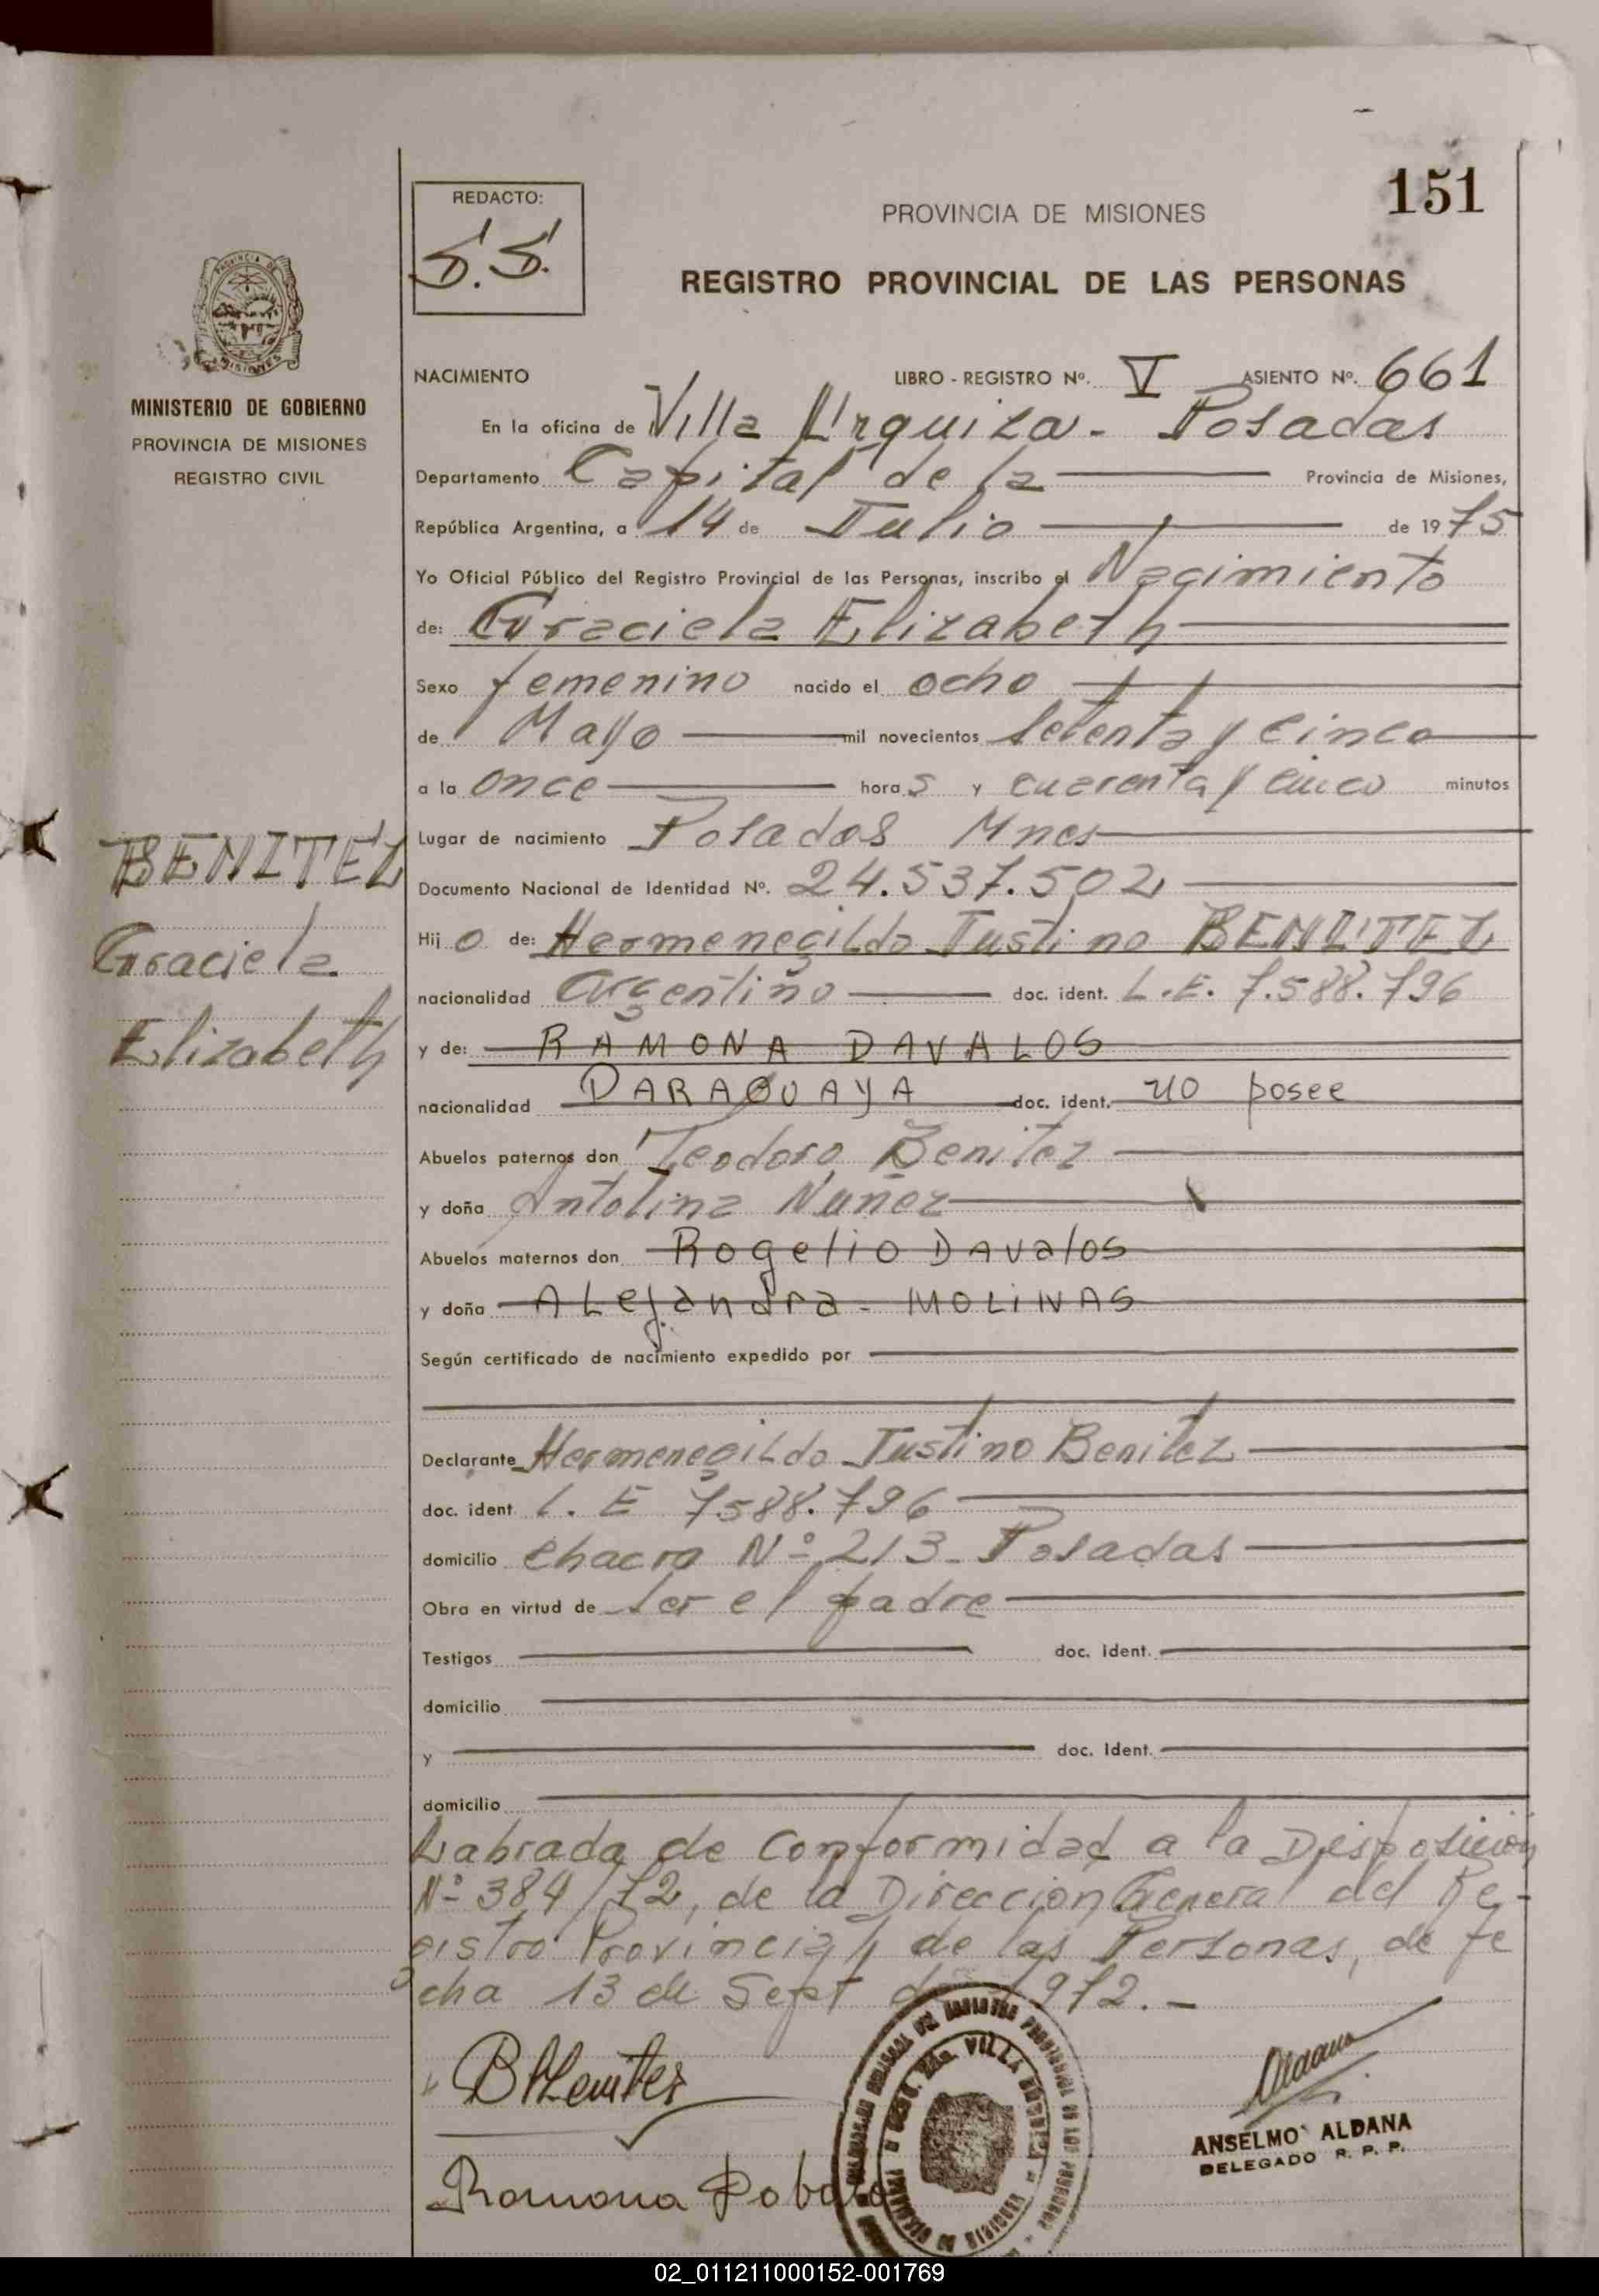 151
REDACTO:
S.S.
PROVINCIA DE MISIONES
REGISTRO PROVINCIAL DE LAS PERSONAS
MINISTERIO DE GOBIERNO
PROVINCIA DE MISIONES
REGISTRO CIVIL
NACIMIENTO LIBRO - REGISTRO Nº. V ASIENTO Nº. 661
En la oficina de Villa Urquiza - Posadas
Departamento Capital de la Provincia de Misiones,
República Argentina, a 14 de Julio de 1975
Yo Oficial Público del Registro Provincial de las Personas, inscribo el Nacimiento
de: Graciela Elizabeth
Sexo femenino nacido el ocho
de Mayo mil novecientos setenta y cinco
a la once horas y cuarenta y cinco minutos
Lugar de nacimiento Posadas Mnes
Documento Nacional de Identidad Nº. 24.537.502
BENITEZ
Graciela
Elizabeth
Hijo de: Hermenegildo Justino BENITEZ
nacionalidad Argentino doc. ident. L.E. 7.588.796
y de: RAMONA DAVALOS
nacionalidad PARAGUAYA doc. ident. no posee
Abuelos paternos don Teodoro Benitez
y doña Antolina Nuñez
Abuelos maternos don Rogelio DAValos
y doña ALejandra - MOLINAS
Según certificado de nacimiento expedido por
Declarante Hermenegildo Justino Benitez
doc. ident. L. E 7588.796
domicilio Chacra Nº 213 - Posadas
Obra en virtud de ser el padre
Testigos doc. ident.
domicilio
y doc. ident.
domicilio
Labrada de Conformidad a la Disposición
Nº 384/72, de la Direccion General del Re-
gistro Provincial de las Personas, de fe
cha 13 de Sept de 1972. -
Ramona
VILLA
ANSELMO ALDANA
DELEGADO R. P. P.
02_011211000152-001769